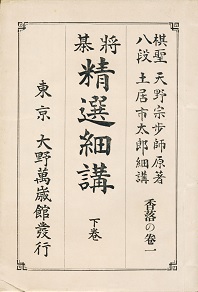 棋聖 天野宗歩師原著
八段 土居市太郎細講
香落の巻一
将棊
精選細講
下巻
東京 大野萬歳館發行